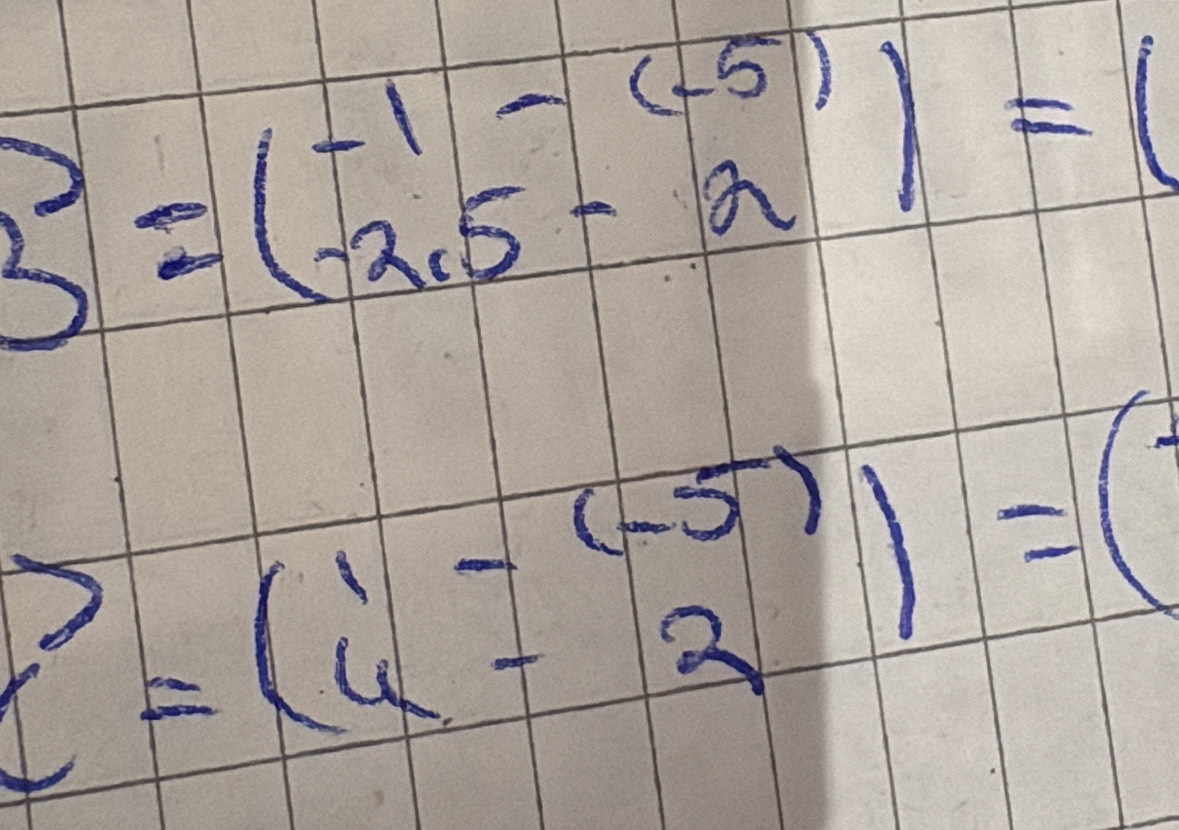 B = ( -1 - (-5) ) = (
-2,5 - 2
C = ( 1 - (-5) ) = (
4 - 2